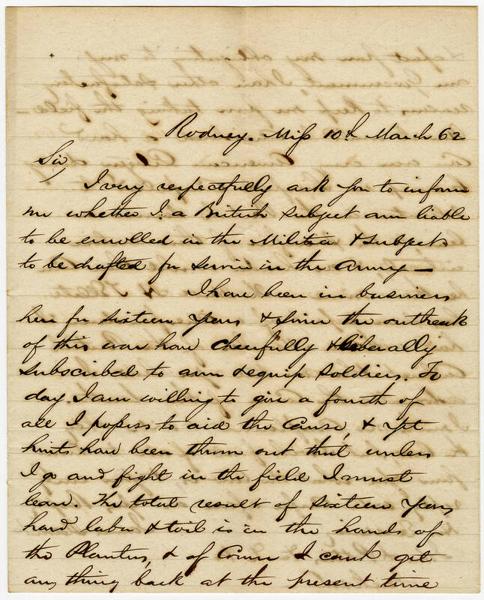 Rodney. Miss 10th March 62
Sir,
I very respectfully ask you to inform
me whether I, a British Subject am liable
to be enrolled in the Militia & subject
to be drafted for Service in the Army —
I have been in business
here for sixteen years & since the outbreak
of this war have cheerfully & liberally
subscribed to arm & equip Soldiers. To
day I am willing to give a fourth of
all I possess to aid the Cause, & yet
hints have been thrown out that unless
I go and fight in the field I must
leave. The total result of sixteen years
hard labor & toil is in the hands of
the Planters, & of Course I cant get
any thing back at the present time